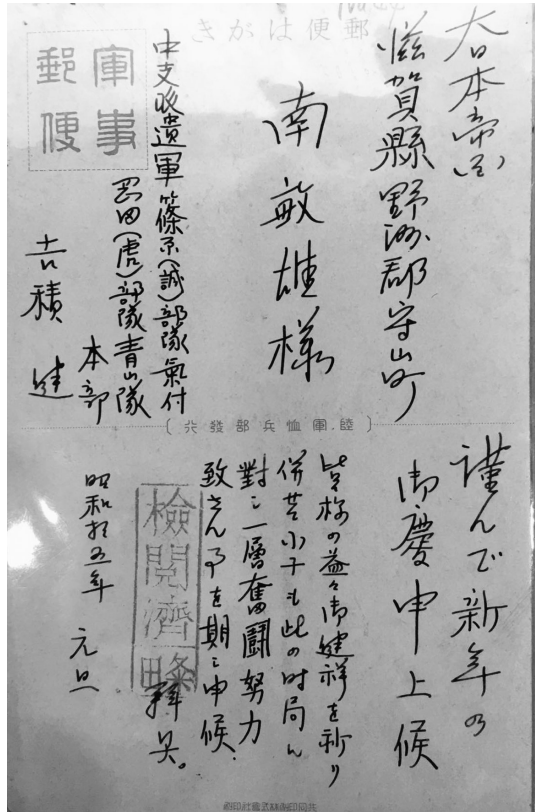 郵便はがき
軍事郵便
大日本帝国
滋賀縣野洲郡守山町
南敏雄様
中支派遣軍篠原(誠)部隊氣付
岡田(虎)部隊青山隊
本部
吉積健
(陸軍恤兵部發行)
謹んで新年の
御慶申上候
皆様の益々御健祥を祈り
併せ小子も此の時局に
對シ一層奮闘努力
致さん事を期シ申候
拜具。
檢閲濟
昭和拾五年 元旦
共同印刷株式會社印刷